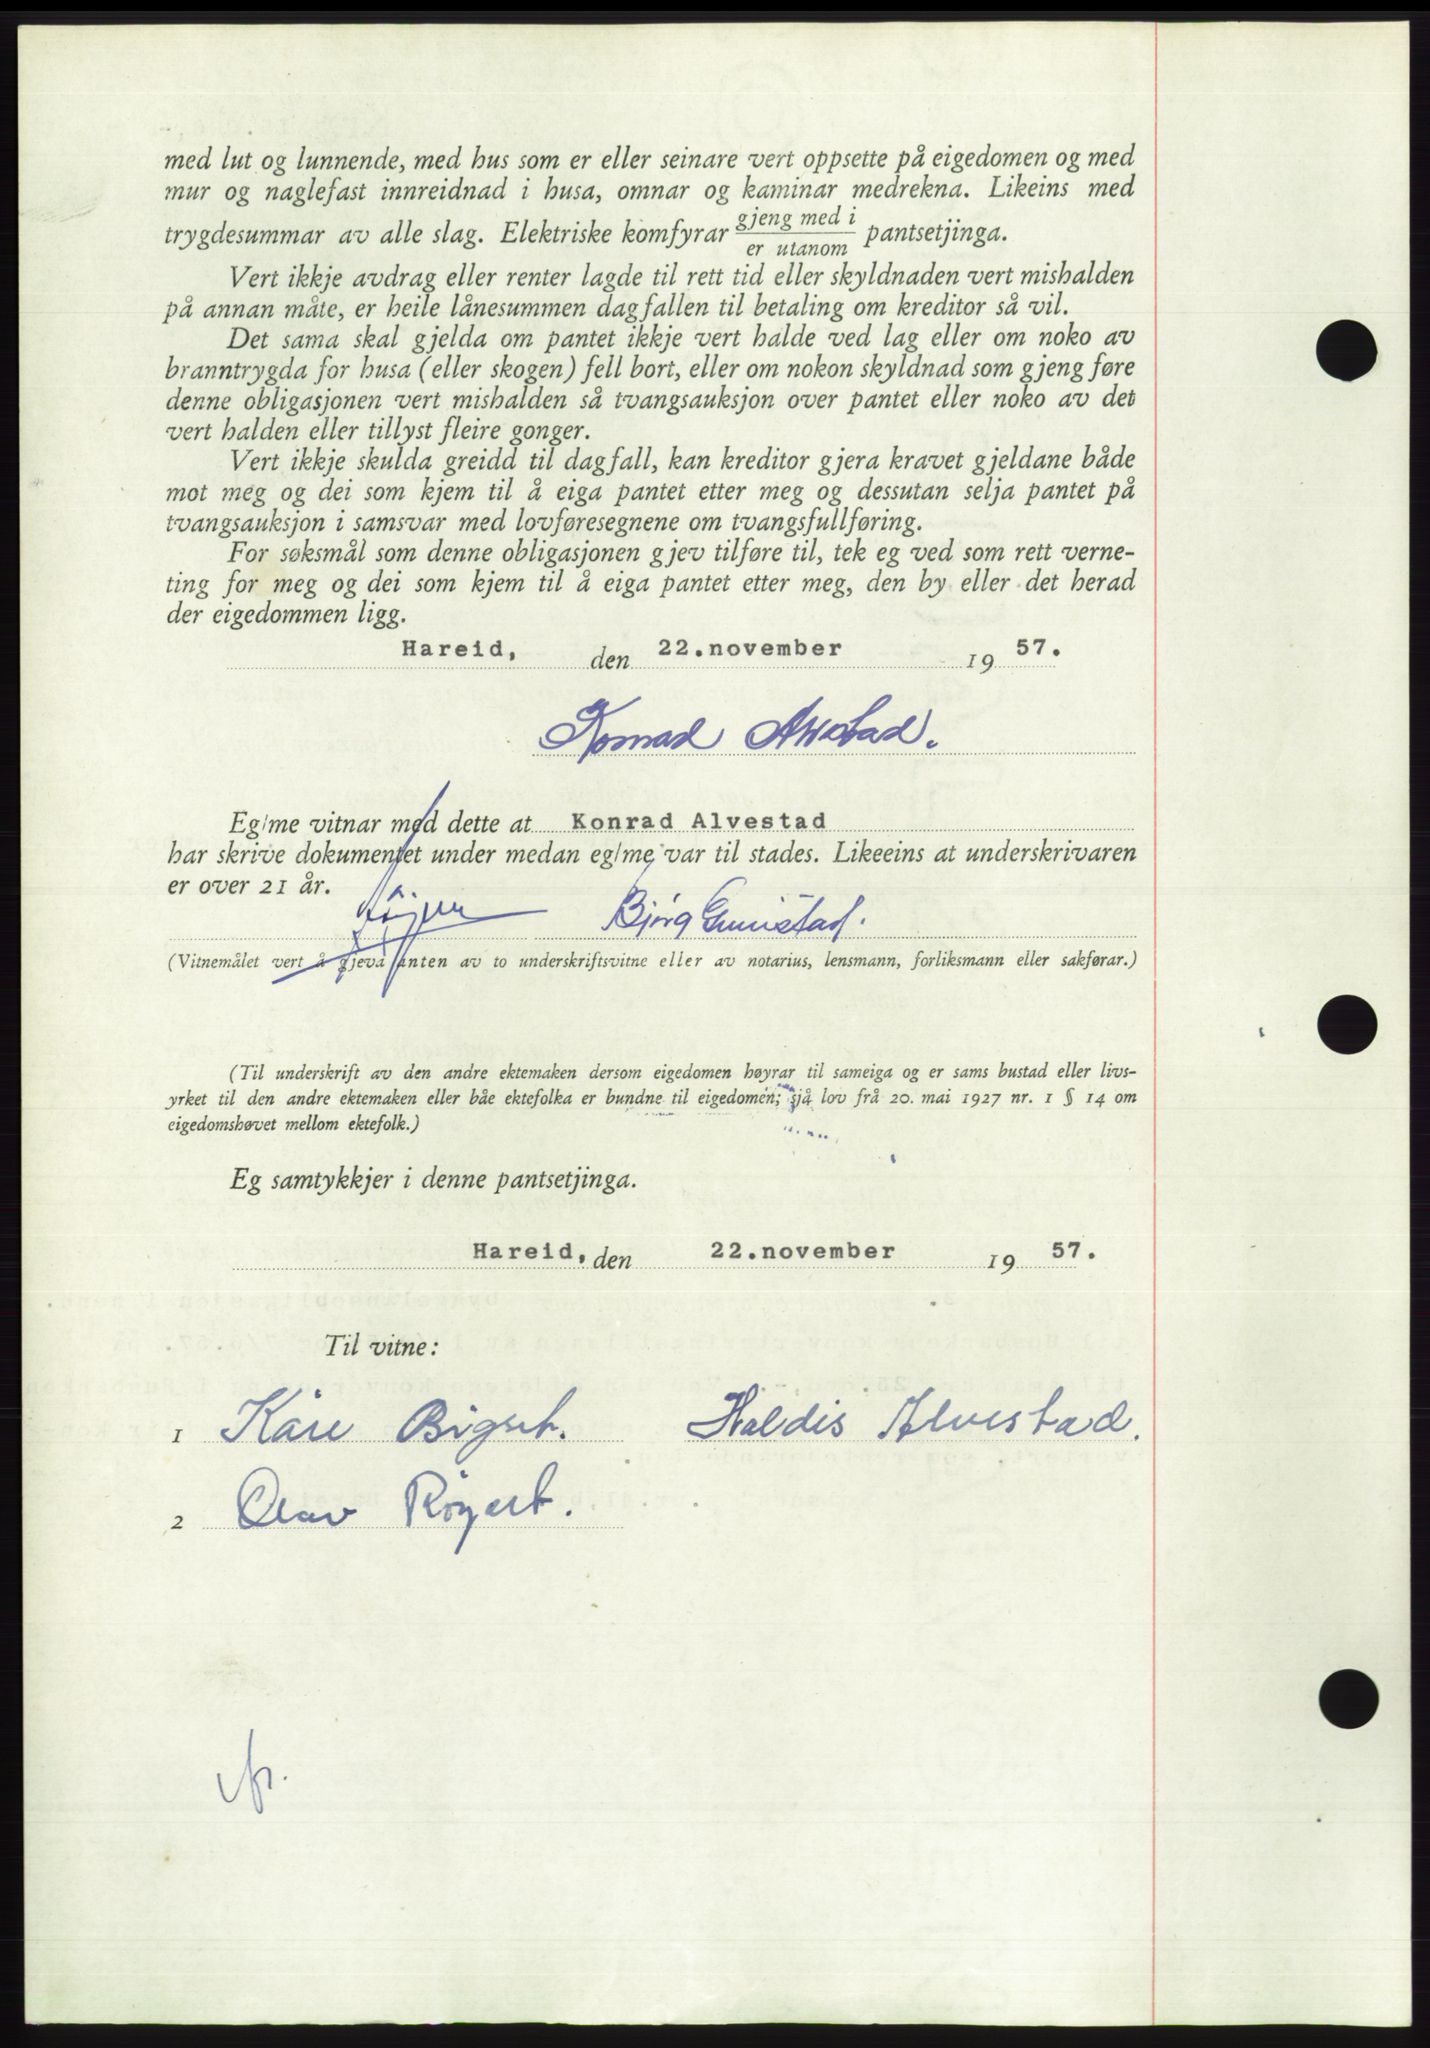 med lut og lunnende, med hus som er eller seinare vert oppsette på eigedomen og med
mur og naglefast innreidnad i husa, omnar og kaminar medrekna. Likeins med
trygdesummar av alle slag. Elektriske komfyrar gjeng med i / er utanom pantsetjinga.
Vert ikkje avdrag eller renter lagde til rett tid eller skyldnaden vert mishalden
på annan måte, er heile lånesummen dagfallen til betaling om kreditor så vil.
Det sama skal gjelda om pantet ikkje vert halde ved lag eller om noko av
branntrygda for husa (eller skogen) fell bort, eller om nokon skyldnad som gjeng føre
denne obligasjonen vert mishalden så tvangsauksjon over pantet eller noko av det
vert halden eller tillyst fleire gonger.
Vert ikkje skulda greidd til dagfall, kan kreditor gjera kravet gjeldane både
mot meg og dei som kjem til å eiga pantet etter meg og dessutan selja pantet på
tvangsauksjon i samsvar med lovføresegnene om tvangsfullføring.
For søksmål som denne obligasjonen gjev tilføre til, tek eg ved som rett verne-
ting for meg og dei som kjem til å eiga pantet etter meg, den by eller det herad
der eigedommen ligg.
Hareid, den 22.november 19 57.
Konrad Alvestad.
Eg/me vitnar med dette at Konrad Alvestad
har skrive dokumentet under medan eg/me var til stades. Likeeins at underskrivaren
er over 21 år.
Bjørg
(Vitnemålet vert å gjeva anten av to underskriftsvitne eller av notarius, lensmann, forliksmann eller sakførar.)
(Til underskrift av den andre ektemaken dersom eigedomen høyrar til sameiga og er sams bustad eller livs-
yrket til den andre ektemaken eller båe ektefolka er bundne til eigedomen; sjå lov frå 20. mai 1927 nr. 1 § 14 om
eigedomshøvet mellom ektefolk.)
Eg samtykkjer i denne pantsetjinga.
Hareid, den 22.november 19 57.
Til vitne:
1 Kåre Bigset. Haldis Alvestad.
2 Olav Røyset.